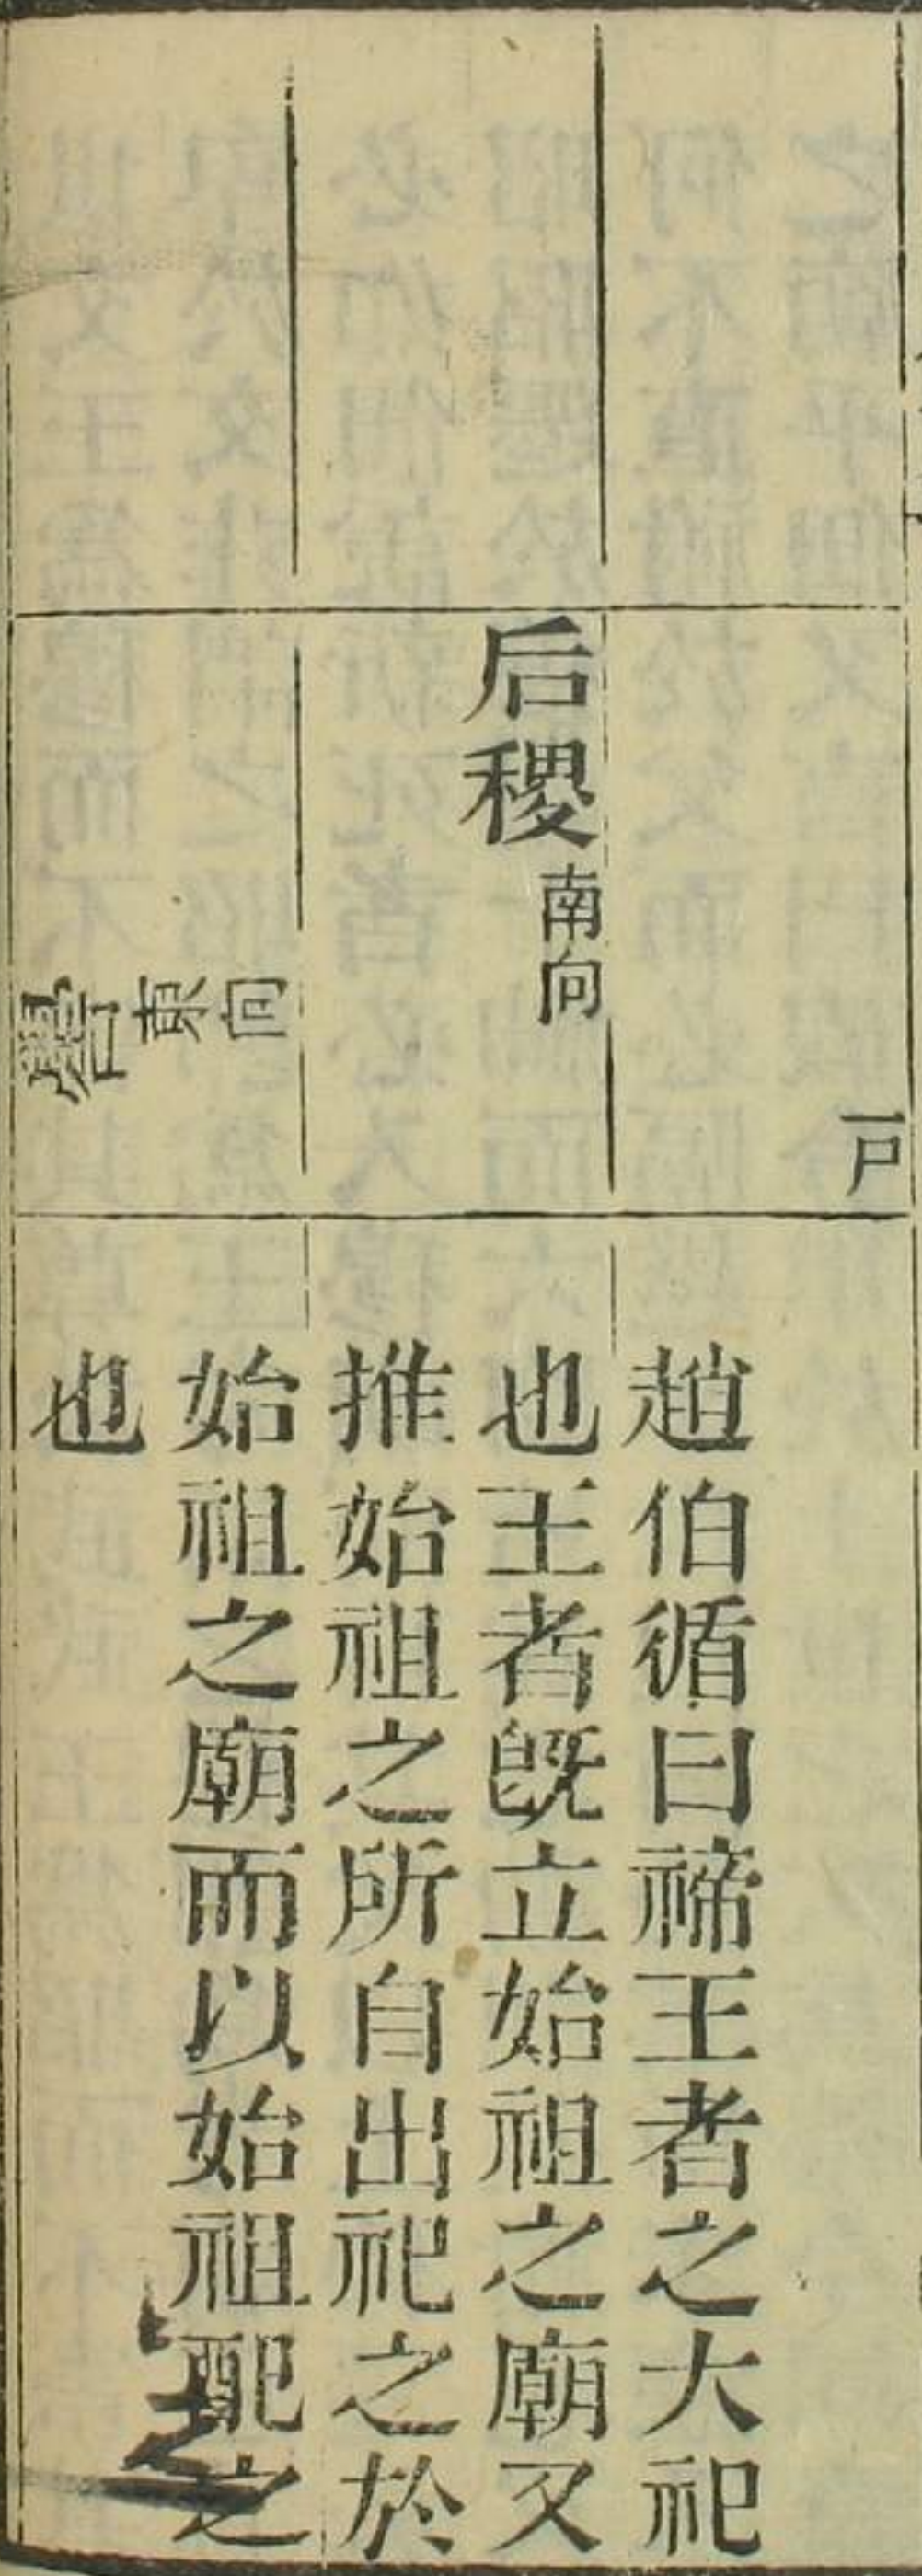 戶
后稷南向
嚳東向
趙伯循曰禘王者之大祀
也王者旣立始祖之廟又
推始祖之所自出祀之於
始祖之廟而以始祖配之
也